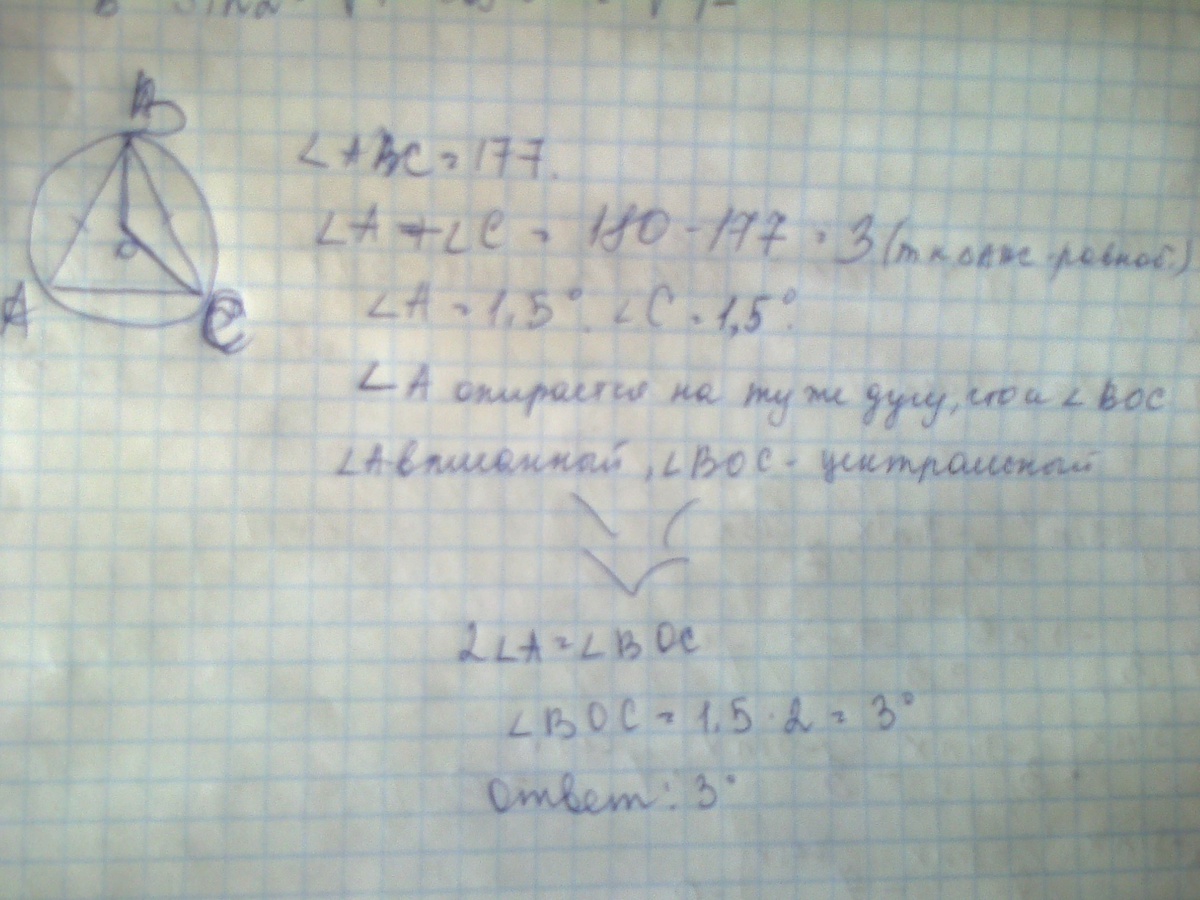 B
A
C
O
∠ABC = 177.
∠A + ∠C = 180 - 177 = 3 (тк
∠A = 1.5°. ∠C = 1,5°.
∠A опирается на ту же дугу, что и ∠BOC
∠A вписанный, ∠BOC - центральный
2∠A = ∠BOC
∠BOC = 1.5 · 2 = 3°
Ответ: 3°